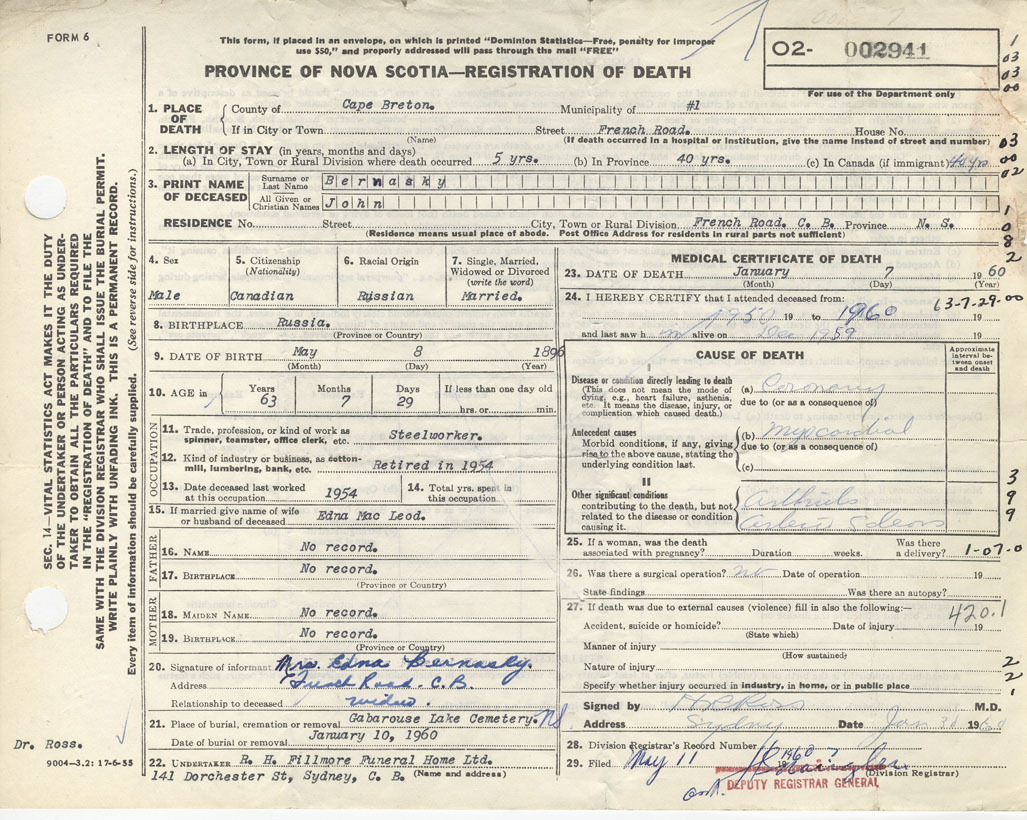 FORM 6
This form, if placed in an envelope, on which is printed "Dominion Statistics—Free, penalty for improper
use $50," and properly addressed will pass through the mail "FREE"
PROVINCE OF NOVA SCOTIA—REGISTRATION OF DEATH
02- 002941
For use of the Department only
1
03
03
00
03
00
02
1
0
8
2
SEC. 14—VITAL STATISTICS ACT MAKES IT THE DUTY
OF THE UNDERTAKER OR PERSON ACTING AS UNDER-
TAKER TO OBTAIN ALL THE PARTICULARS REQUIRED
IN THE "REGISTRATION OF DEATH" AND TO FILE THE
SAME WITH THE DIVISION REGISTRAR WHO SHALL ISSUE THE BURIAL PERMIT.
WRITE PLAINLY WITH UNFADING INK. THIS IS A PERMANENT RECORD.
Every item of information should be carefully supplied. (See reverse side for instructions.)
1. PLACE OF DEATH
County of Cape Breton. Municipality of #1
If in City or Town Street French Road. House No.
(Name) (If death occurred in a hospital or institution, give the name instead of street and number)
2. LENGTH OF STAY (in years, months and days)
(a) In City, Town or Rural Division where death occurred 5 yrs. (b) In Province 40 yrs. (c) In Canada (if immigrant) 40 yrs
3. PRINT NAME OF DECEASED
Surname or Last Name Bernasky
All Given or Christian Names John
RESIDENCE No. Street City, Town or Rural Division French Road. C. B. Province N. S.
(Residence means usual place of abode. Post Office Address for residents in rural parts not sufficient)
4. Sex
Male
5. Citizenship
(Nationality)
Canadian
6. Racial Origin
Russian
7. Single, Married,
Widowed or Divorced
(write the word)
Married.
8. BIRTHPLACE Russia.
(Province or Country)
9. DATE OF BIRTH May 8 1896
(Month) (Day) (Year)
10. AGE in Years Months Days If less than one day old
63 7 29 hrs. or min.
OCCUPATION
11. Trade, profession, or kind of work as
spinner, teamster, office clerk, etc. Steelworker.
12. Kind of industry or business, as cotton-
mill, lumbering, bank, etc. Retired in 1954
13. Date deceased last worked
at this occupation 1954
14. Total yrs. spent in
this occupation
15. If married give name of wife
or husband of deceased Edna Mac Leod.
FATHER
16. NAME No record.
17. BIRTHPLACE No record.
(Province or Country)
MOTHER
18. MAIDEN NAME No record.
19. BIRTHPLACE No record.
(Province or Country)
20. Signature of informant Mrs. Edna Bernasky.
Address French Road C.B.
Relationship to deceased widow.
21. Place of burial, cremation or removal Gabarouse Lake Cemetery. NS
Date of burial or removal January 10, 1960
22. UNDERTAKER R. H. Fillmore Funeral Home Ltd.
141 Dorchester St, Sydney, C. B. (Name and address)
Dr. Ross.
9004—3.2: 17-6-55
MEDICAL CERTIFICATE OF DEATH
23. DATE OF DEATH January 7 1960
(Month) (Day) (Year)
24. I HEREBY CERTIFY that I attended deceased from: 63-7-29-00
1950 19 to 1960
and last saw h m alive on Dec 1959
CAUSE OF DEATH
Approximate
interval be-
tween onset
and death
I
Disease or condition directly leading to death
(This does not mean the mode of
dying, e.g., heart failure, asthenia,
etc. It means the disease, injury, or
complication which caused death.)
(a) Coronary
due to (or as a consequence of)
Antecedent causes
Morbid conditions, if any, giving
rise to the above cause, stating the
underlying condition last.
(b) Myocardial
due to (or as a consequence of)
(c)
II
Other significant conditions
contributing to the death, but not
related to the disease or condition
causing it.
Arthritis
3
9
9
25. If a woman, was the death
associated with pregnancy? Duration weeks. Was there
a delivery? 1-07-0
26. Was there a surgical operation? no Date of operation 19
State findings Was there an autopsy?
27. If death was due to external causes (violence) fill in also the following:—
420.1
Accident, suicide or homicide? Date of injury 19
(State which)
Manner of injury
(How sustained)
Nature of injury
Specify whether injury occurred in industry, in home, or in public place
2
2
1
Signed by Ross M.D.
Address Sydney Date Jan 1960
28. Division Registrar's Record Number
29. Filed May 11 1960
(Division Registrar)
DEPUTY REGISTRAR GENERAL